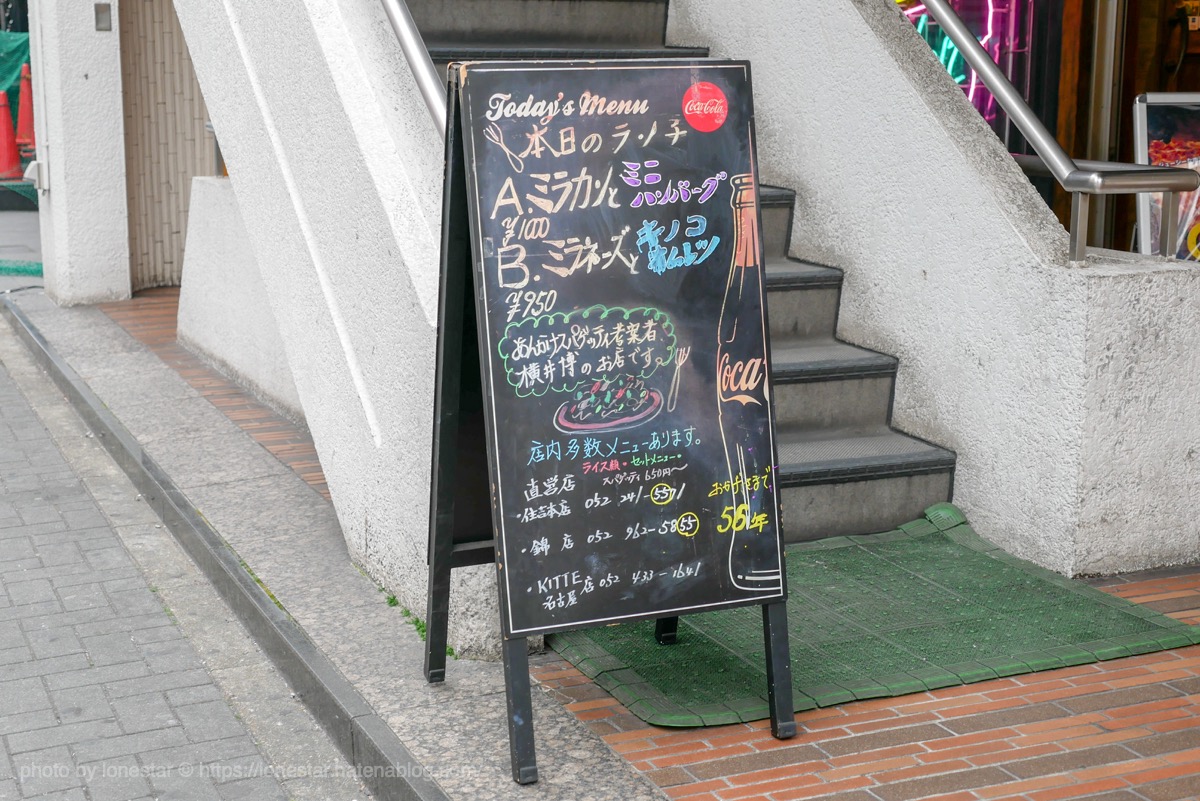 Today's Menu
Coca-Cola
本日のランチ
A.ミラカンと ミニハンバーグ
¥1000
B.ミラネーズと キノコオムレツ
¥950
あんかけスパゲッティ考案者、
横井博のお店です。
Coca
店内多数メニューあります。
ライス類・セットメニュー・
スパゲッティ 650円〜
直営店
・住吉本店 052 241-5571
・錦店 052 962-5855
・KITTE名古屋店 052 433-1641
おかげさまで
56年
photo by lonestar © https://lonestar.hatenablog.com/